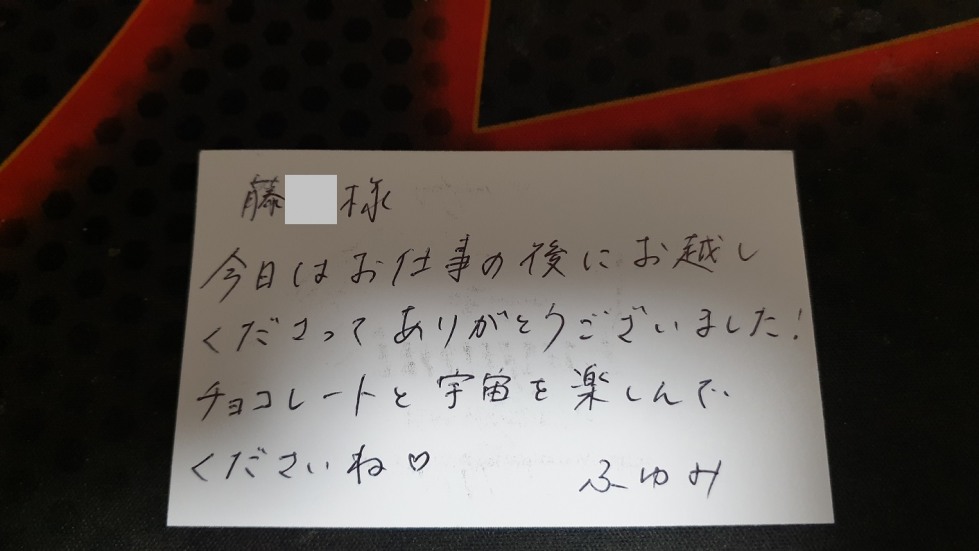 藤 様
今日はお仕事の後にお越し
くださってありがとうございました!
チョコレートと宇宙を楽しんで
くださいね♡
ふゆみ